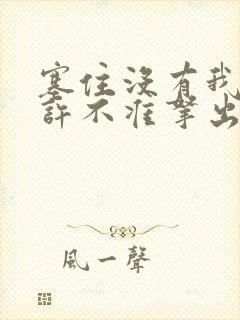 塞住没有我
許不准拏出
風一聲